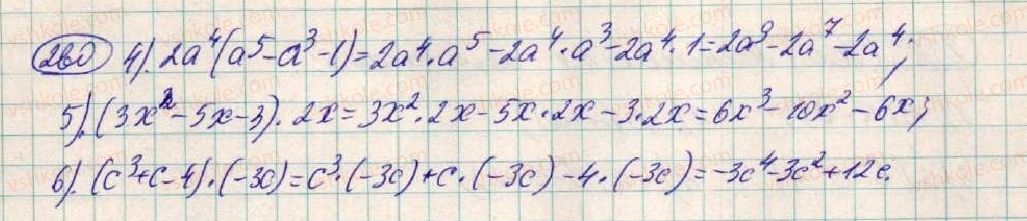 260 4). 2a⁴(a⁵-a³-1)=2a⁴·a⁵-2a⁴·a³-2a⁴·1=2a⁹-2a⁷-2a⁴;
5). (3x²-5x-3)·2x=3x²·2x-5x·2x-3·2x=6x³-10x²-6x;
6). (c³+c-4)·(-3c)=c³·(-3c)+c·(-3c)-4·(-3c)=-3c⁴-3c²+12c.